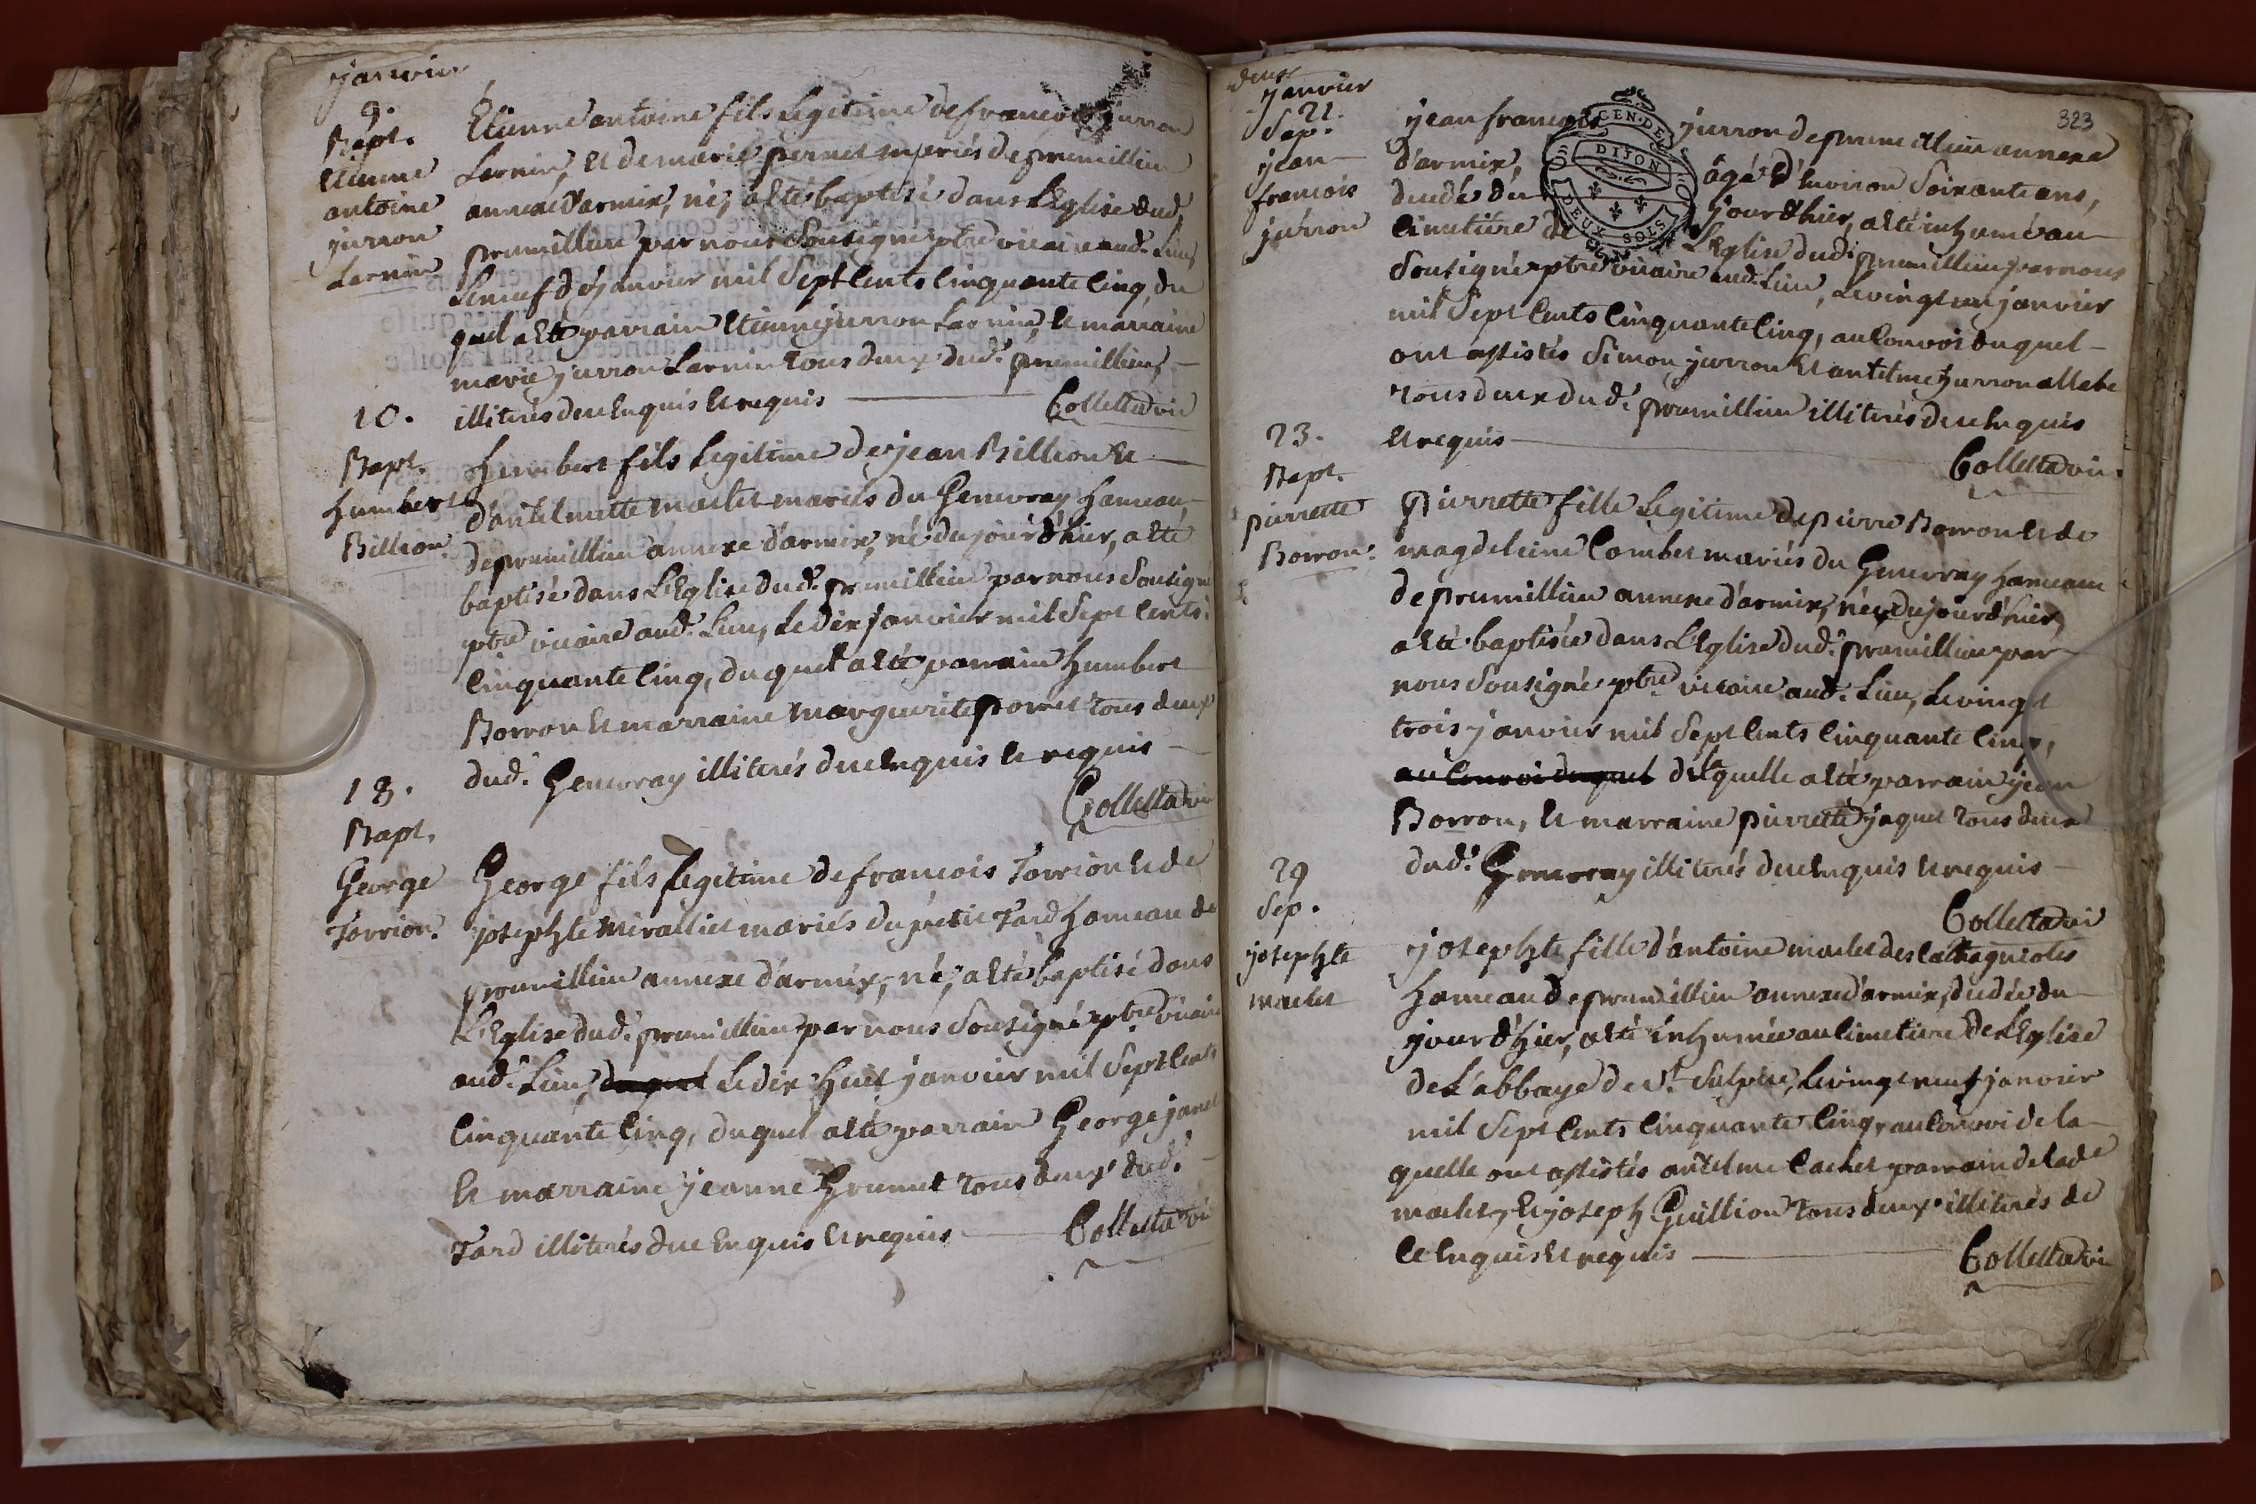 janvier
9.
Bapt.
Etienne
antoine
jurron
Larnin
Etienne antoine fils Legitime de francois jurron
Larnin, et de marie pernet mariés de prumillieu
annexe d'armix, né, a été baptisé dans L'Eglise dud.
prumillieu par nous Sousigné ptre vicaire aud. Lieu,
Le neuf de janvier mil Sept Cents Cinquante Cinq, du
quel a été parrain Etienne jurron Larnin, et marraine
marie jurron Larnin tous deux dud. prumillieu,
illiterés de ce Enquis et requis
Colletta vic
10.
Bapt.
humbert
Billion
humbert fils Legitime de jean Billion et
d'antelmette maclet mariés du Genevray hameau
de prumillieu annexe d'armix, né du jour d'hier, a été
baptisé dans L'Eglise dud. prumillieu par nous Sousigné
ptre vicaire aud. Lieu, Le dix janvier mil Sept Cents
Cinquante Cinq, du quel a été parrain humbert
Borron et marraine marguerite porret tous deux
dud. Genevray illiterés de ce Enquis et requis
Colletta vic
18.
Bapt.
George
Torrion.
George fils Legitime de francois Torrion et de
josephte miralliet mariés du petit Tard hameau de
prumillieu annexe d'armix, né, a été baptisé dans
L'Eglise dud. prumillieu par nous Sousigné ptre vicaire
aud. Lieu, duquel Le dix huit janvier mil Sept Cents
Cinquante Cinq, du quel a été parrain George janet
et marraine jeanne Grumet tous deux dud.
Tard illiterés de ce Enquis et requis
Colletta vic
323
janvier
21.
Sep.
jean
francois
jurron
GEN. DE
DIJON
DEUX SOLS
jean francois jurron de prumillieu annexe
d'armix, âgé d'Environ Soixante ans,
decédé du jour d'hier, a été inhumé au
Cimetiere de L'Eglise dud. prumillieu par nous
Sousigné ptre vicaire aud. Lieu, Le vingt un janvier
mil Sept Cents Cinquante Cinq, au Convoi du quel
ont assistés Simon jurron et antelme jurron allebe
tous deux dud. prumillieu illiterés de ce Enquis
et requis
Colletta vic.
23.
Bapt.
pierrette
Borron.
pierrette fille Legitime de pierre Borron et de
magdeleine Combet mariés du Genevray hameau
de prumillieu annexe d'armix, née du jour d'hier,
a été baptisée dans L'Eglise dud. prumillieu par
nous Sousigné ptre vicaire aud. Lieu, Le vingt
trois janvier mil Sept Cents Cinquante Cinq,
au Convoi duquel de laquelle a été parrain jean
Borron, et marraine pierrette jaquet tous deux
dud. Genevray illiterés de ce Enquis et requis
Colletta vi
29
Sep.
josephte
maclet
josephte fille d'antoine maclet des
hameau de prumillieu annexe d'armix, decedée du
jour d'hier, a été inhumée au Cimetiere de L'Eglise
de L'abbaye de St. Sulpice, Le vingt neuf janvier
mil Sept Cents Cinquante Cinq, au Convoi de la
quelle ont assistés antelme Cachet parrain de lade
maclet, et joseph Guillion tous deux illiterés de
Ce Enquis et requis
Colletta vi